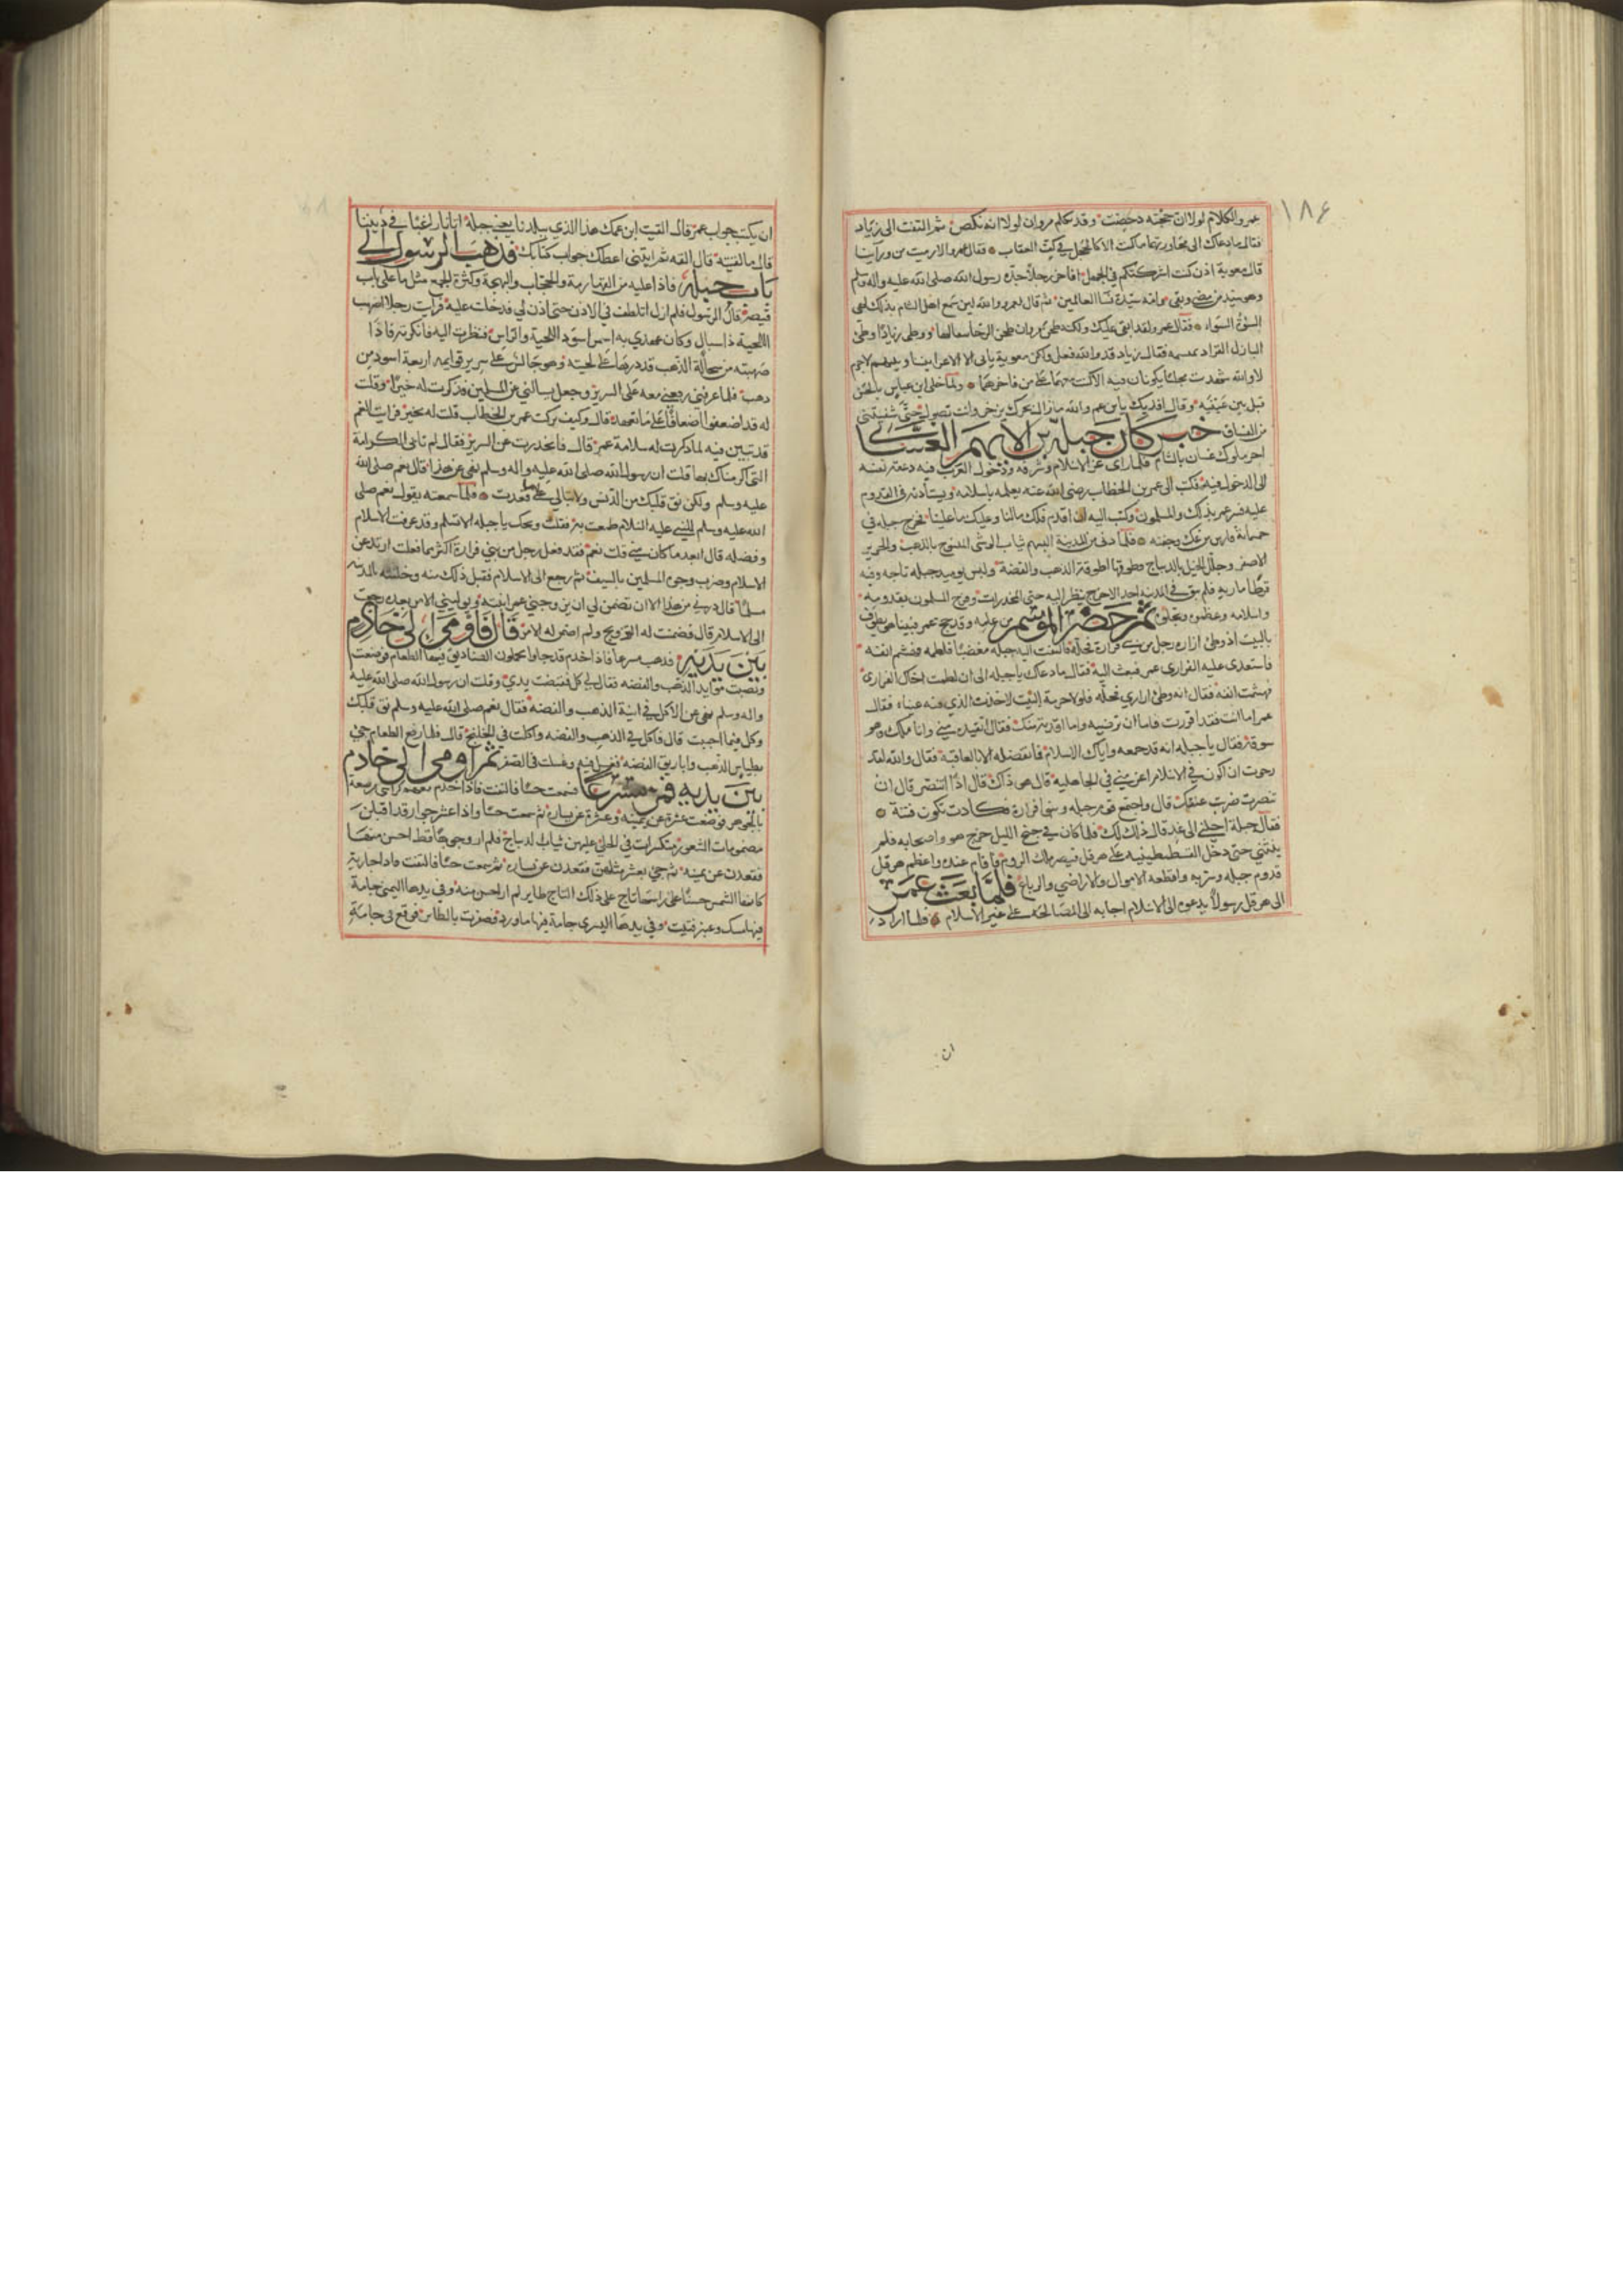 ١٨٤
عمرو الكلام لولا ان حجته دحضت وقد تكلم مروان لولا انه نكص ثم التفت الى زياد
فقال ما دعاك الى محاورته ما كنت الا كالحجل في كف العقاب فقال عمرو الا رميت من ورآينا
قال معوية اذن كنت اشركتكم في الجهل افاخر رجلاً جده رسول الله صلى الله عليه واله وسلم
وهو سيد من مضى وبقي وامه سيدة نسا العالمين ثم قال لعمرو والله لين سمع اهل الشام بذلك لهي
السوءة السواء فقال عمرو لقد ابقى عليك ولكنه طحن مروان طحن الرحا بثفالها ووطى زيادا وطئ
البازل القراد بمنسمه فقال زياد قد والله فعل ولكن معوية يابى الا الاغرا بيننا وبينهم لا جرم
لا والله شهدت مجلسا يكونان فيه الا كنت معهما على من فاخرهما ولما خلى ابن عباس بالحسن
قبل بين عينيه وقال افديك يا بن عم والله ما زال بحرك يزخر وانت تصول حتى شفيتني
من الفساق خبر كان جبلة بن الايهم الغساني
اخر ملوك غسان بالشام فلما راى عز الاسلام وشرفه ودخول العرب فيه دعته نفسه
الى الدخول فيه فكتب الى عمر بن الخطاب رضى الله عنه يعلمه باسلامه ويستأذنه فى القدوم
عليه فسر عمر بذلك والمسلمون وكتب اليه ان اقدم فلك مالنا وعليك ما علينا فخرج جبله في
خمسماية فارس من عك وجفنه فلما دنى من المدينة البسهم ثياب الوشى المنسوج بالذهب والحرير
الاصفر وجلل الخيل بالديباج وطوقها اطوقة الذهب والفضة ولبس يوميذ جبله تاجه وفيه
قرطا ماريه فلم يبق في المدينه احد الا خرج ينظر اليه حتى المخدرات وفرح المسلمون بقدومه
واسلامه وعظموه وبجلوه ثم حضر الموسم من عامه وقد حج عمر فبينا هو يطوف
بالبيت اذ وطئ ازاره رجل من بني فزارة فحله فالتفت اليه جبله مغضبًا فلطمه فهشم انفه
فاستعدى عليه الفزارى عمر فبعث اليه فقال ما دعاك يا جبله الى ان لطمت اخاك الفزارى
فهشمت انفه فقال انه وطئ ازاري فحله فلولا حرمة البيت لاخذت الذي فيه عيناه فقال
عمر اما انت فقد اقررت فاما ان ترضيه واما اقدته منك فقال اتقيده مني وانا ملك وهو
سوقة فقال يا جبله انه قد جمعه واياك الاسلام فما تفضله الا بالعافية فقال والله لقد
رجوت ان اكون في الاسلام اعز مني في الجاهليه قال هو ذاك قال اذًا اتنصر قال ان
تنصرت ضربت عنقك قال واجتمع قوم جبله وبنى فزارة فكادت تكون فتنة
فقال جبلة اجلني الى غد قال ذلك لك فلما كان في جنح الليل خرج هو واصحابه فلم
ينثني حتى دخل القسطنطينيه على هرقل قيصر ملك الروم فاقام عنده واعظم هرقل
قدوم جبله وسر به واقطعه الاموال والاراضي والرباع فلما بعث عمر
الى هرقل رسولاً يدعوه الى الاسلام اجابه الى المصالحه على غير الاسلام فلما اراد
ان
ان يكتب جواب عمر قال القيت ابن عمك هذا الذي ببلدنا يعني جبلة اتانا راغبا في ديننا
قال ما لقيته قال القه ثم ايتني اعطك جواب كتابك فذهب الرسول الى
باب جبلة فاذا عليه من القهارمة والحجاب والبهجة وكثرة الجمع مثل ما على باب
قيصر قال الرسول فلم ازل اتلطف في الاذن حتى اذن لي فدخلت عليه فرأيت رجلا اصهب
اللحية ذا سبال وكان عهدي به اسمر اسود اللحية والراس فنظرت اليه فانكرته فاذا
صهبته من سحالة الذهب قد درها على لحيته وهو جالس على سرير قوايمه اربعة اسود من
ذهب فلما عرفني رفعني معه على السرير وجعل يسالني عن المسلمين فذكرت له خيرًا وقلت
له قد اضعفوا اضعافًا على ما تعهد قال وكيف تركت عمر بن الخطاب قلت له بخير فرايت الغم
قد تبين فيه لما ذكرت له سلامة عمر قال فانحدرت عن السرير فقال لم تابى الكرامة
التي اكرمناك بها قلت ان رسول الله صلى الله عليه واله وسلم نهى عن هذا قال نعم صلى الله
عليه وسلم ولكن نق قلبك من الدنس ولا تبالى على ما قعدت فلما سمعته يقول نعم صلى
الله عليه وسلم للنبي عليه السلام طمعت به فقلت ويحك يا جبله الا تسلم وقد عرفت الاسلام
وفضله قال ابعد ما كان مني قلت نعم فقد فعل رجل من بني فزارة اكثر مما فعلت ارتد عن
الاسلام وضرب وجوه المسلمين بالسيف ثم رجع الى الاسلام فقبل ذلك منه وخلفته بالمدينه
مسلمًا قال ذرني من هذا الا ان تضمن لي ان يزوجني عمر ابنته ويوليني الامر بعده رجعت
الى الاسلام قال فضمنت له التزويج ولم اضمن له الامر قال فاومى الى خادم
بين يديه فذهب مسرعا فاذا خدم قد جاوا يحملون الصناديق فيها الطعام فوضعت
ونصبت موايد الذهب والفضه فقال لي كل فقبضت يدي وقلت ان رسول الله صلى الله عليه
واله وسلم نهى عن الاكل في انية الذهب والفضه فقال نعم صلى الله عليه وسلم نق قلبك
وكل فيما احببت قال فاكل في الذهب والفضه واكلت فى الخلنج قال فلما رفع الطعام جئ
بطياس الذهب واباريق الفضه فغسل فيه وغسلت في الصفر ثم اومى الى خادم
بين يديه فمر مسرعًا فسمعت حسًا فالتفت فاذا خدم معهم كراسى مرصعة
بالجوهر فوضعت عشرة عن يمينه وعشرة عن يساره ثم سمعت حسًا واذا عشر جوار قد اقبلن
مضمومات الشعور متكسرات في الحلى عليهن ثياب الديباج فلم ار وجوهًا قط احسن منها
فقعدن عن يمينه ثم جئ بعشر مثلهن فقعدن عن يساره ثم سمعت حسًا فالتفت فاذا جارية
كانها الشمس حسنًا على راسها تاج على ذلك التاج طاير لم ار احسن منه وفي يدها اليمنى جامة
فيها مسك وعنبر فتيت وفي يدها اليسرى جامة فيها ماورد فصفرت بالطاير فوقع في جامة